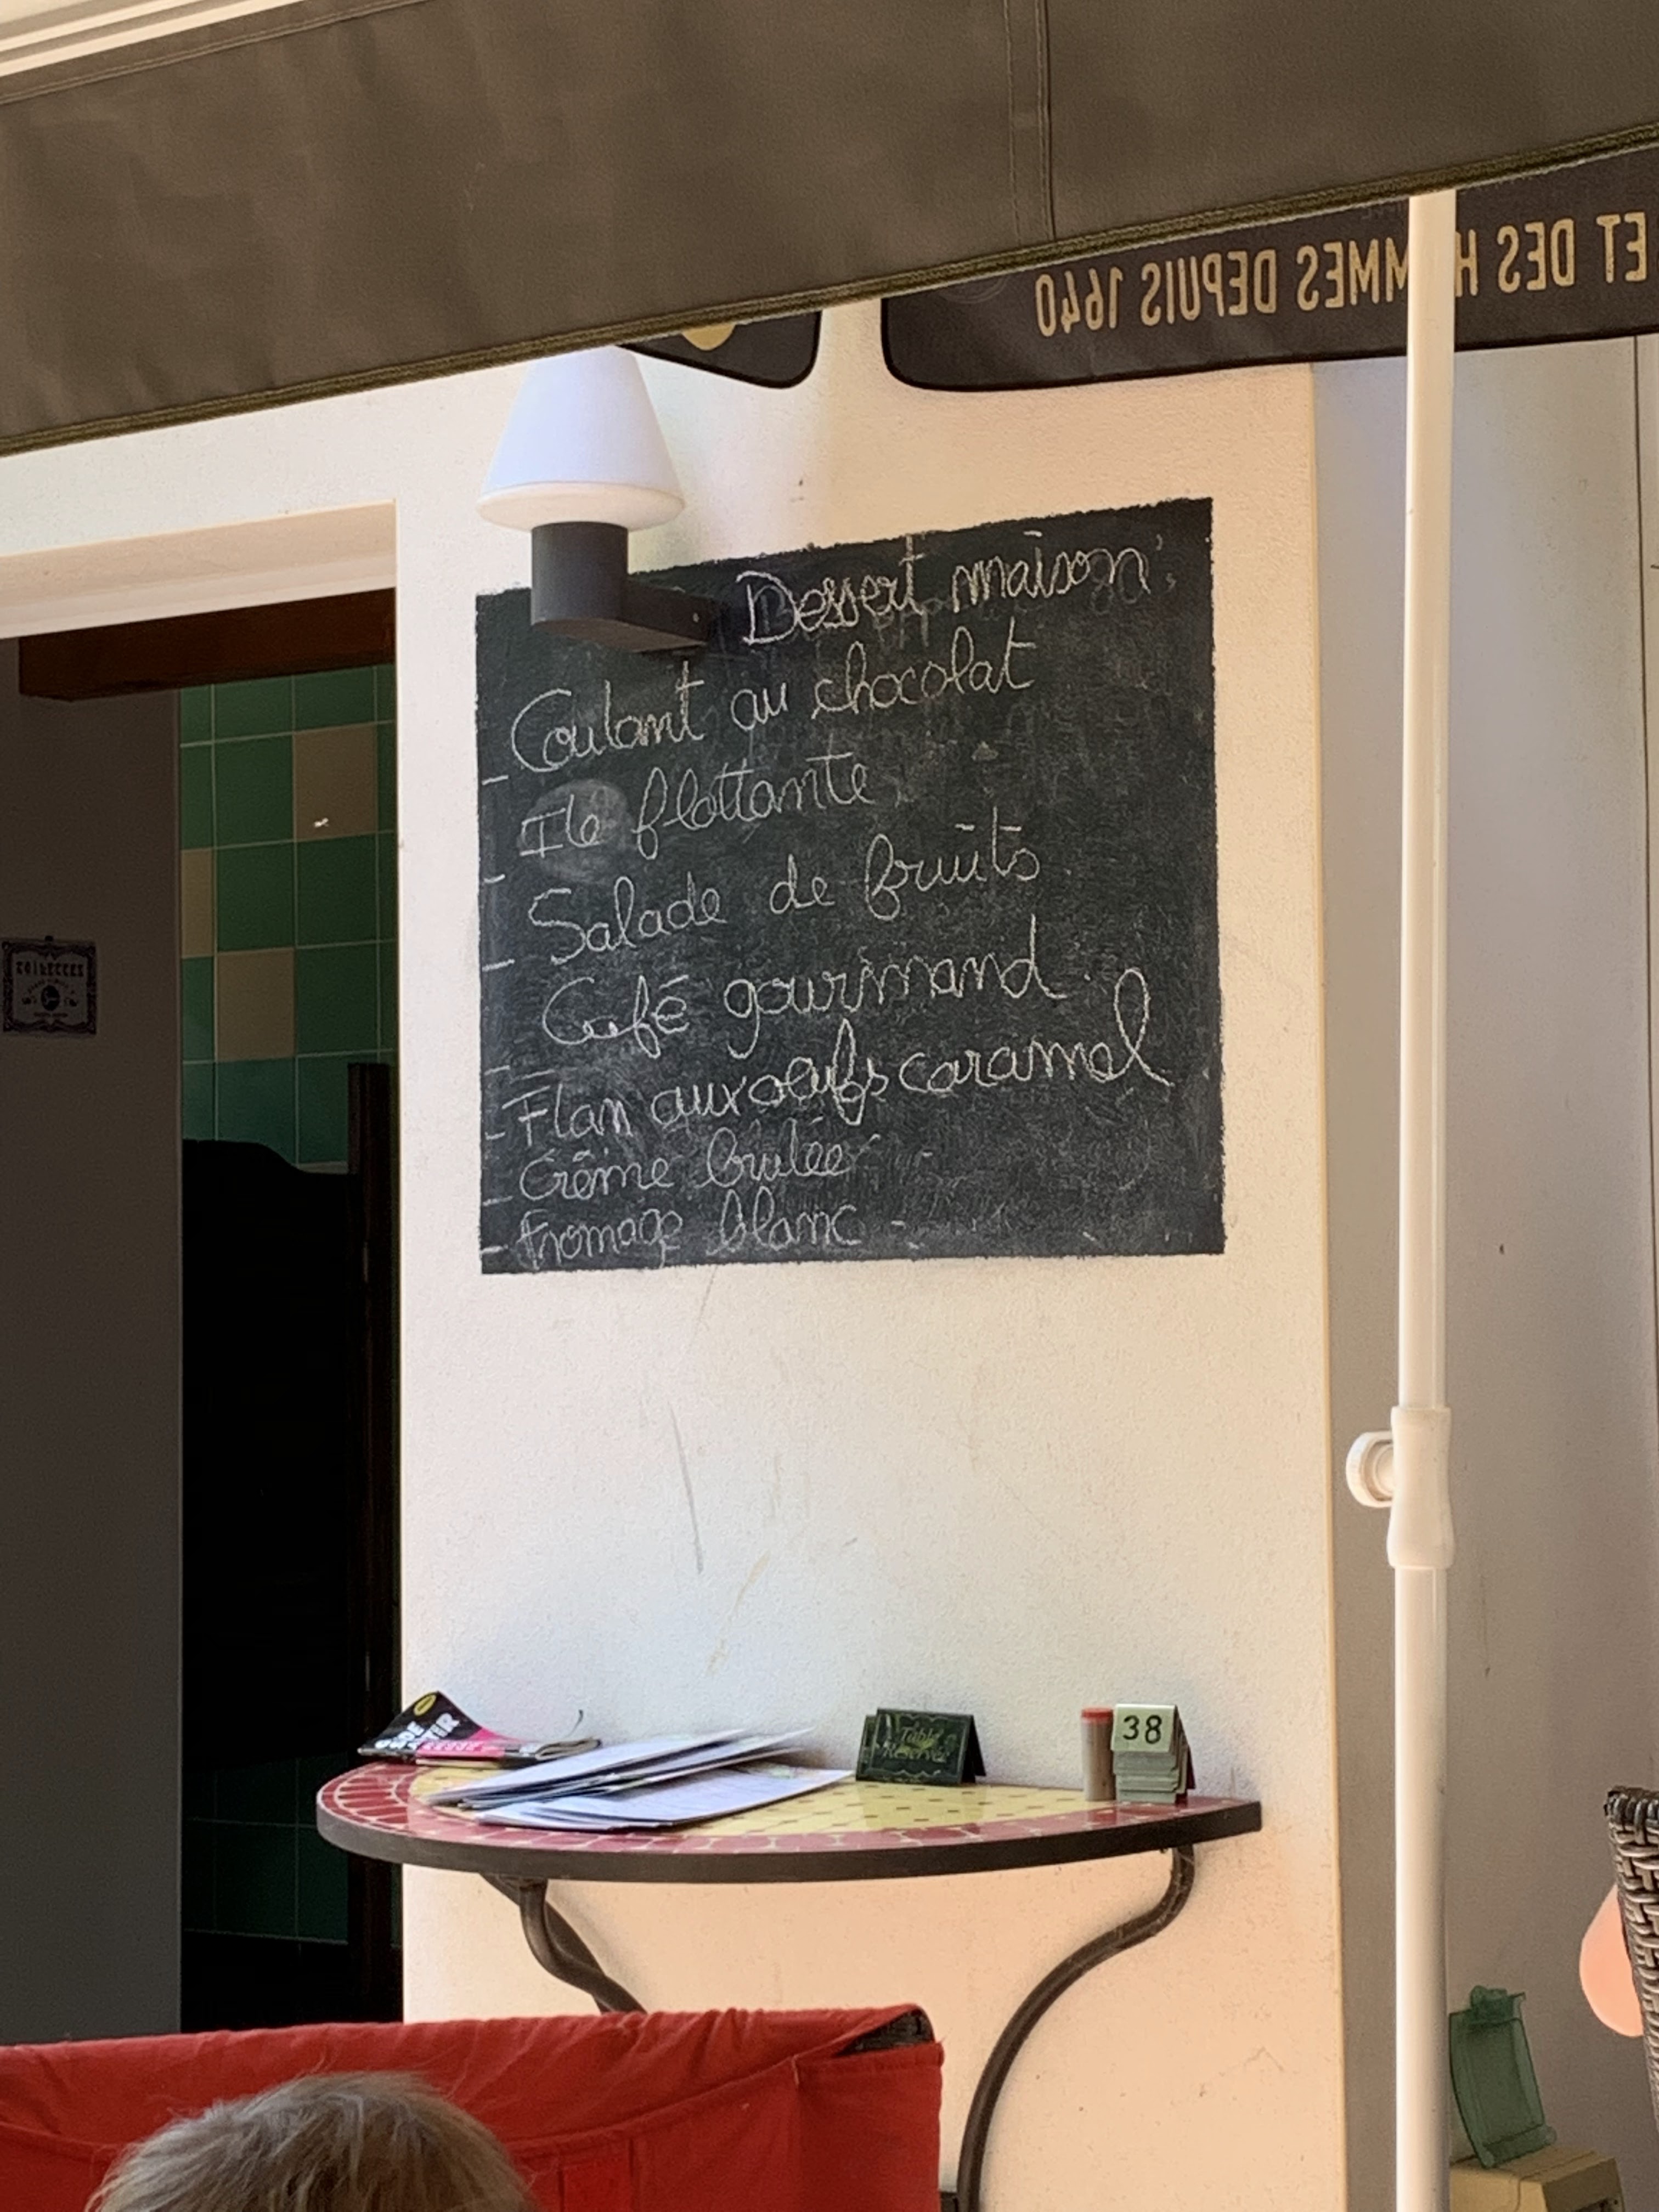 ET DES HOMMES DEPUIS 1640
Dessert maison:
- Coulant au chocolat
- Ile flottante
- Salade de fruits
- Café gourmand
- Flan aux oeufs caramel
- Crème brulée
- Fromage blanc -
Table
Réservée
38